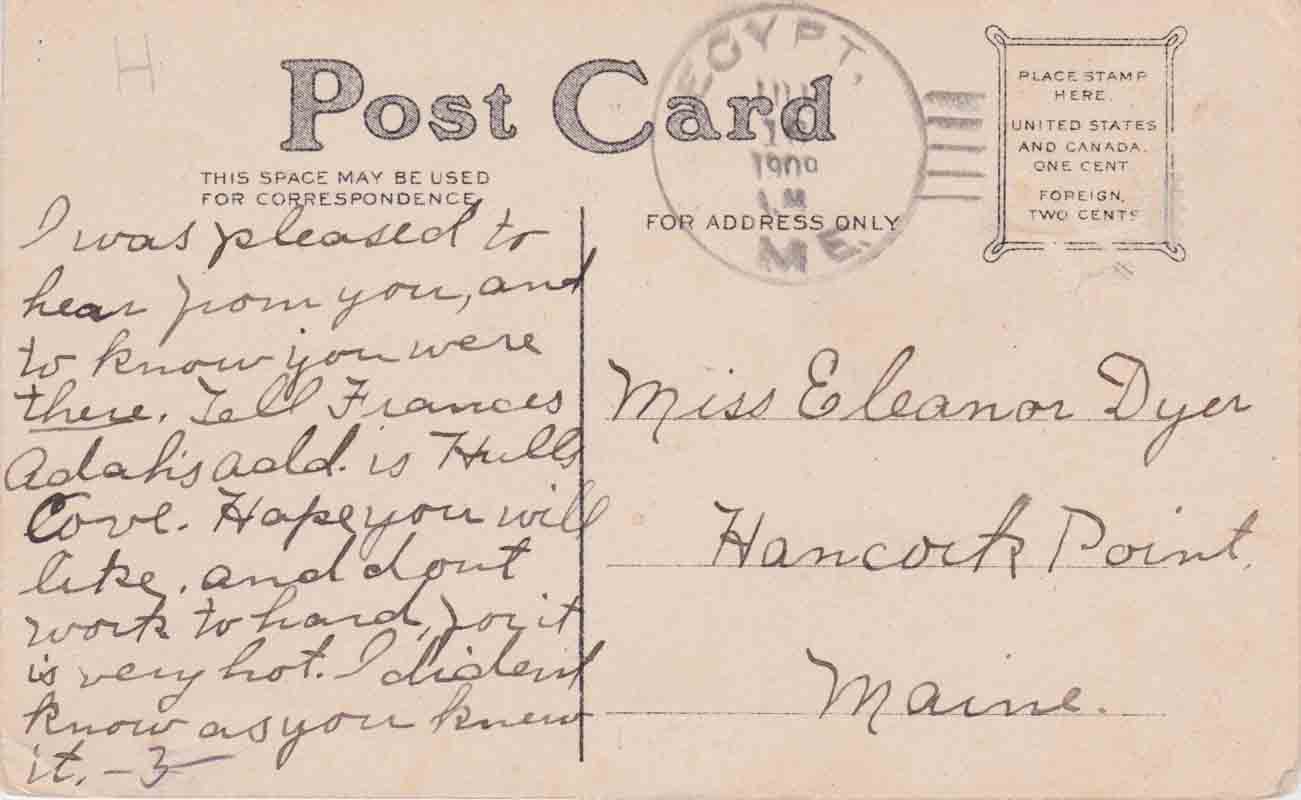 H
Post Card
EGYPT,
1909
ME.
PLACE STAMP
HERE.
UNITED STATES
AND CANADA.
ONE CENT
FOREIGN,
TWO CENTS
THIS SPACE MAY BE USED
FOR CORRESPONDENCE
FOR ADDRESS ONLY
I was pleased to
hear from you, and
to know you were
there. Tell Frances
Adah's add. is Hulls
Cove. Hope you will
like. and dont
work to hard, for it
is very hot. I dident
know as you knew
it. -3
Miss Eleanor Dyer
Hancock Point.
Maine.